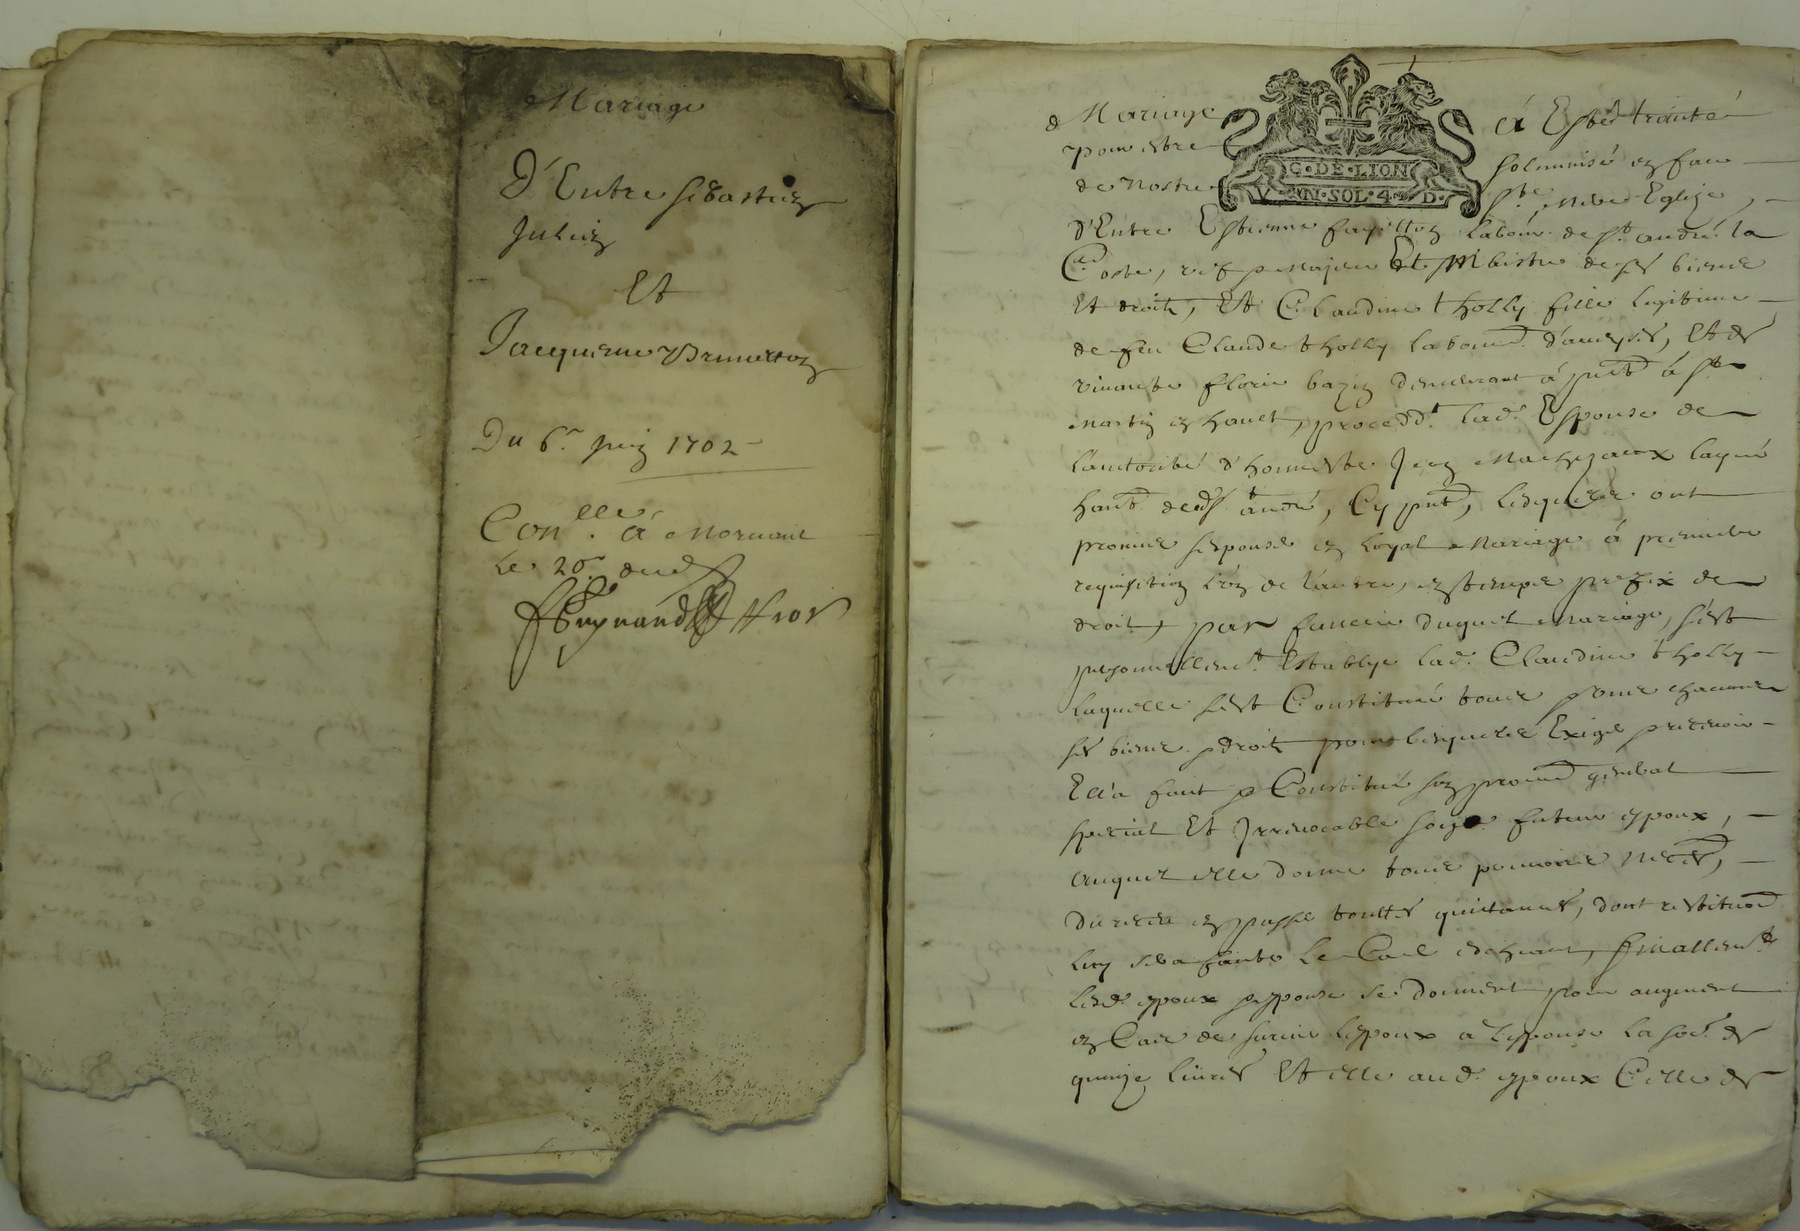 Mariage
D'Entre sebastien
Julien
Et
Jacqueme Brunetton
Du 6e. juin 1702
Con.lle à Mornant
Le 20e dud
Mariage a Esté traité
pour estre solemnisé en face
de Nostre ste. mere Eglize,
G·DE·LION
SOL·4·D·
D'Entre Estienne fayetton labour. de st. andré la
Coste, Et Mbistre de ses biens
Et droits, Et Claudine tholly fille legitime
de feu Claude tholly labour. d'aveyse, Et de
vivante florie bazin demeurant á pnt á st
martin en hault, procedt. lad. Espouse de
l'autorité d'honneste Jean layné
habt. dud st. andré, Cy pnt, lesquels ont
promis s'espouser en loyal Mariage á premiere
requisition l'un de l'autre, en temps prefix de
droit, par faveur duquel Mariage, s'est
personnellemt. Establye lad. Claudine tholly
laquelle s'est Constitué tous chacuns
ses biens droits pour lesquels Exiger recevoir
Ell'a fait Constitué son procur. general
special Et Irrevocable sond. futeur espoux,
auquel elle donne tous pouvoirs Neces.,
du receu en passer touttes quictances, dont restituon
luy sera faite le Cas echeant, finallemt.
lesd. espoux espouse se donnent pour augment
en Cas de survie l'espoux a l'espouse la so. de
quinze livres Et elle aud. espoux Celle de